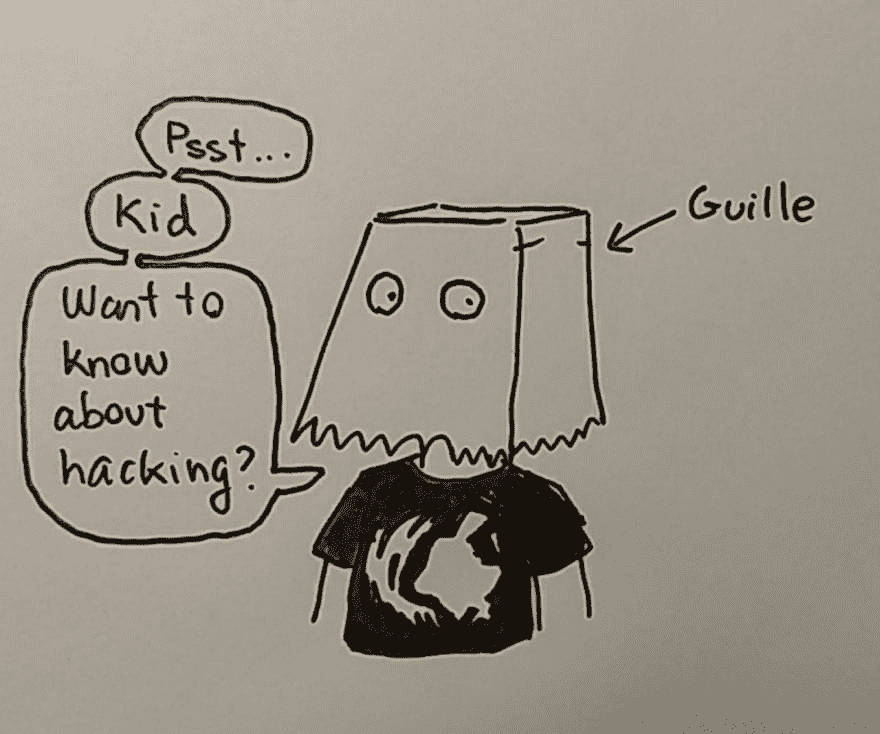 Psst...
Kid
Want to
know
about
hacking?
Guille